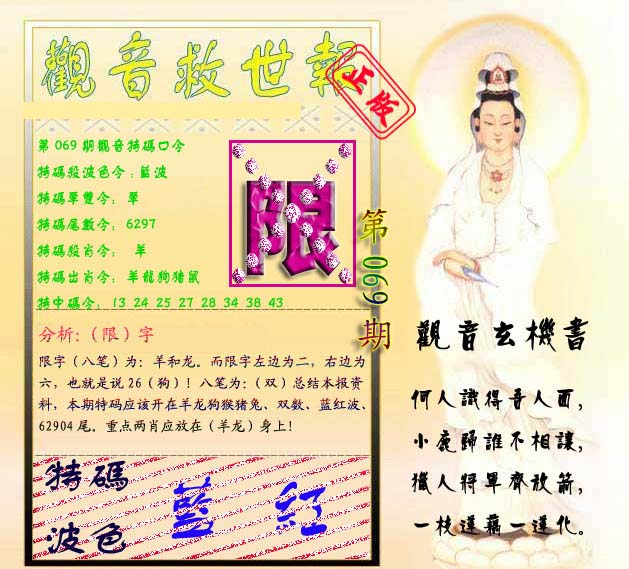 觀音救世報
正版
第069期觀音特碼口令
特碼殺波色令:藍波
特碼單雙令: 單
特碼尾數令: 6297
特碼殺肖令: 羊
特碼出肖令: 羊龍狗猪鼠
特中碼令: 13 24 25 27 28 34 38 43
限
第069期
分析:(限)字
限字(八笔)为:羊和龙。而限字左边为二,右边为
六,也就是说26(狗)!八笔为:(双)总结本报资
料,本期特码应该开在羊龙狗猴猪兔、双数、蓝红波、
62904尾。重点两肖应放在(羊龙)身上!
特碼
波色
藍 紅
觀音玄機書
何人識得吾人面,
小鹿歸誰不相讓,
獵人將軍齊放箭,
一枝蓮藕一蓮化。